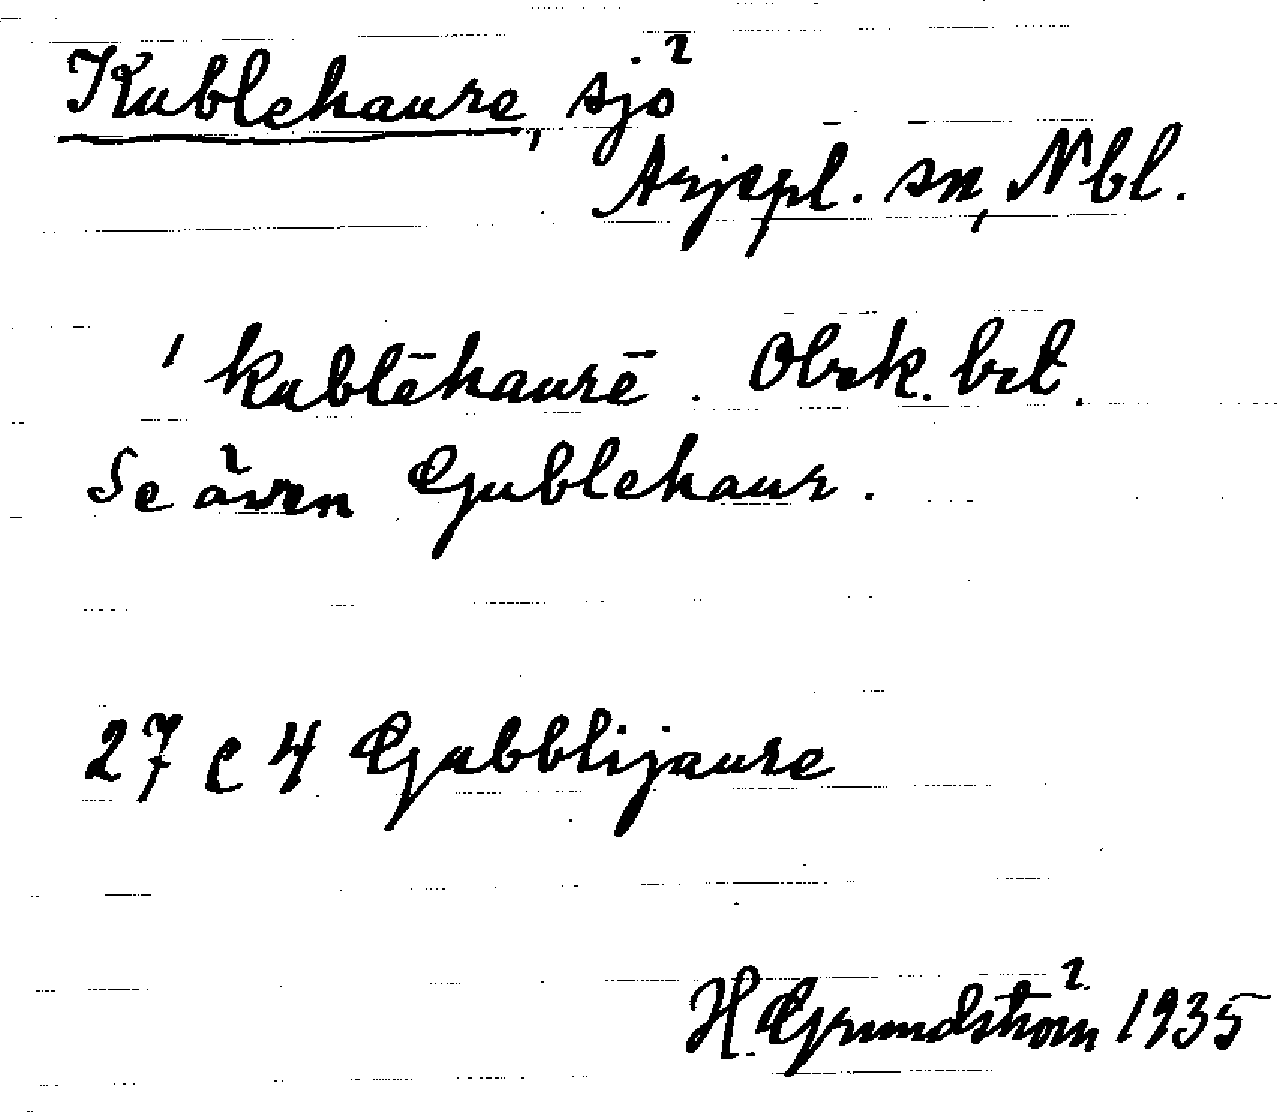 Kublehaure, sjö
Arjepl. sn, Nbl.
'kublēhaurē. Obrk. brt.
Se även Gublehaur.
27 c 4 Gubblijaure
H. Grundström 1935